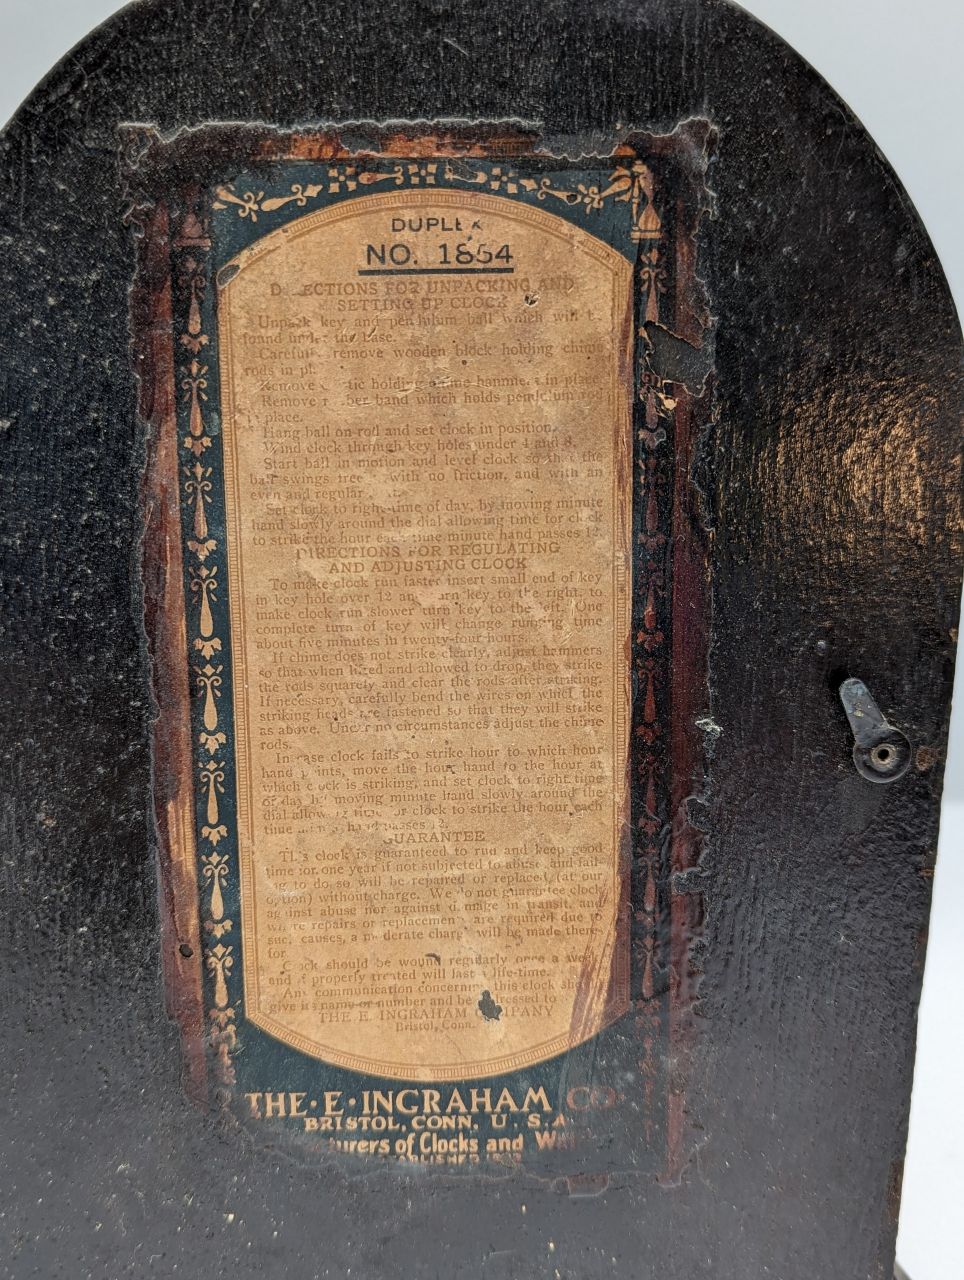 DUPLEX
NO. 1854
DIRECTIONS FOR UNPACKING AND
SETTING UP CLOCK
Unpack key and pendulum ball which will be
found under the base.
Carefully remove wooden block holding chime
rods in pl
Remove holding chime hammers in place
Remove rubber band which holds pendulum rod
in place.
Hang ball on rod and set clock in position.
Wind clock through key holes under 4 and 8.
Start ball in motion and level clock so that the
ball swings free with no friction, and with an
even and regular
Set clock to right time of day, by moving minute
hand slowly around the dial allowing time for clock
to strike the hour each time minute hand passes 12.
DIRECTIONS FOR REGULATING
AND ADJUSTING CLOCK
To make clock run faster insert small end of key
in key hole over 12 and turn key to the right, to
make clock run slower turn key to the left. One
complete turn of key will change running time
about five minutes in twenty-four hours.
If chime does not strike clearly, adjust hammers
so that when lifted and allowed to drop, they strike
the rods squarely and clear the rods after striking.
If necessary, carefully bend the wires on which the
striking heads are fastened so that they will strike
as above. Under no circumstances adjust the chime
rods.
In case clock fails to strike hour to which hour
hand points, move the hour hand to the hour at
which clock is striking, and set clock to right time
of day by moving minute hand slowly around the
dial allowing time for clock to strike the hour each
time hand passes 12.
GUARANTEE
This clock is guaranteed to run and keep good
time for one year if not subjected to abuse and fail-
to do so will be repaired or replaced (at our
option) without charge. We do not guarantee clock
against abuse nor against damage in transit, and
where repairs or replacement are required due to
such causes, a moderate charge will be made there-
for
Clock should be wound regularly once a week
and if properly treated will last a life-time.
Any communication concerning this clock should
give its name or number and be addressed to
THE E. INGRAHAM COMPANY
Bristol, Conn.
THE·E·INGRAHAM CO·
BRISTOL, CONN. U. S. A
turers of Clocks and W